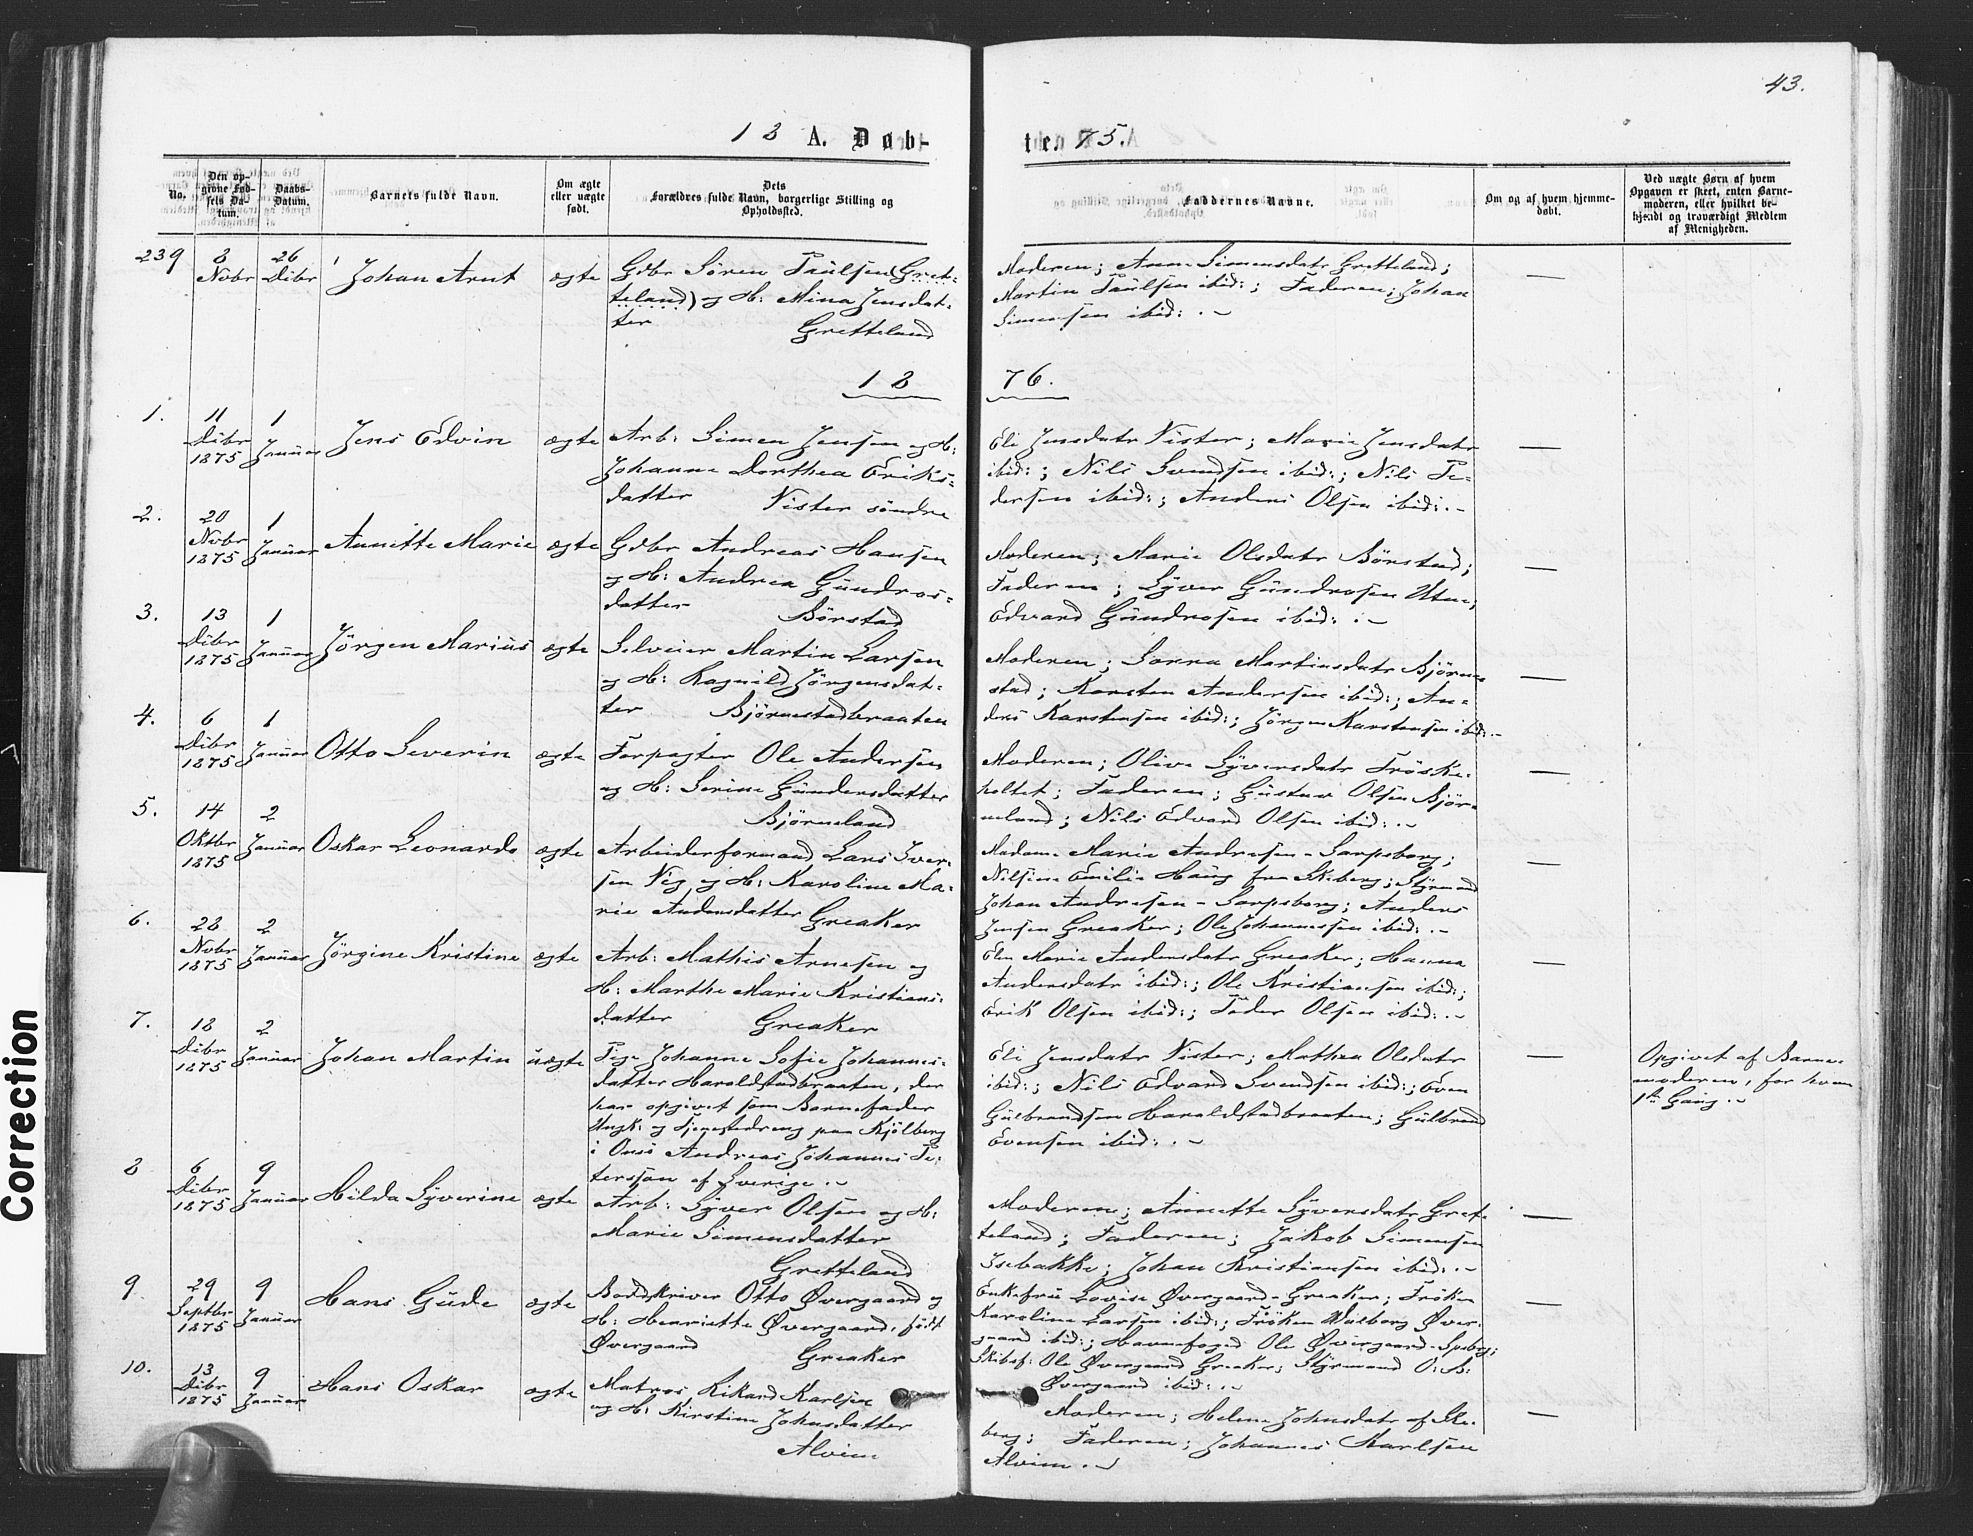 43.
18 A. Døb-
te. 75.
No.
Den op-
givne Fød-
sels Da-
tum.
Daabs-
Datum.
Barnets fulde Navn.
Om ægte
eller uægte
født.
Dets
Forældres fulde Navn, borgerlige Stilling og
Opholdssted.
Faddernes Navne.
Om og af hvem hjemme-
døbt.
Ved uægte Børn af hvem
Opgaven er skeet, enten Barne-
moderen, eller hvilket be-
kjendt og troværdigt Medlem
af Menigheden.
239
8
Nvbr
26
Dibr
Johan Arnt
ægte
Gdbr Søren Paulsen (Gret-
teland) og H: Mina Jensdat-
ter
Gretteland
Moderen; Anne Simensdatr Gretteland;
Martin Paulsen ibid:; Faderen; Johan
Simensen ibid: .-
—
18
76.
1.
11
Dibr
1875
1
Januar
Jens Edvin
ægte
Arb: Simen Jensen og H:
Johanne Dorthea Eriks-
datter Vister söndre
Eli Jensdatr Vister; Marie Jensdatr
ibid:; Nils Svendsen ibid:; Nils Pe-
dersen ibid:; Anders Olsen ibid: .-
—
2.
20
Nvbr
1875
1
Januar
Annette Marie
ægte
Gdbr Andreas Hansen
og H: Andrea Gundros-
datter Børstad
Moderen; Marie Olsdatr Børstad;
Faderen; Syver Gundrosen Utne;
Edvard Gundrosen ibid: .-
—
3.
13
Dibr
1875
1
Januar
Jörgen Marius
ægte
Selveier Martin Larsen
og H: Ragnild Jörgensdat-
ter Bjørnstadbraaten
Moderen; Martinsdatr Bjørn-
stad; Karsten Andersen ibid:; An-
ders Karstensen ibid:; Jörgen Karstensen ibid: .-
—
4.
6
Dibr
1875
1
Januar
Otto Severin
ægte
Forpagter Ole Andersen
og H: Serine Gundersdatter
Bjørneland
Moderen; Olive Syversdatr Fröske-
holtet; Faderen; Gustav Olsen Bjør-
neland; Nils Edvard Olsen ibid: .-
—
5.
14
Oktbr
1875
2
Januar
Oskar Leonardo
ægte
Arbeiderformand Lars Iver-
sen Vig og H: Karoline Ma-
rie Andersdatter Greaker
Madam Marie Andresen - Sarpsborg;
Nilsine Emilie Haug fra Skeberg; Styrmand
Johan Andresen - Sarpsborg; Anders
Jensen Greaker; Ole Johannessen ibid: .-
—
6.
28
Nvbr
1875
2
Januar
Jørgine Kristine
ægte
Arb: Mathis Arnesen og
H: Marthe Marie Kristians-
datter Greaker
Elen Marie Andersdatr Greaker; Hanna
Andersdatr ibid:; Ole Kristiansen ibid:;
Erik Olsen ibid:; Peder Olsen ibid: .-
—
7.
18
Dibr
1875
2
Januar
Johan Martin
uægte
Pige Johanne Sofie Johannes-
datter Haraldstadbraaten, der
har opgivet som Barnefader
Ungk: og Tjenestedreng paa Kjölberg
i Onsö Andreas Johannes Pe-
tersson af Sverige .-
Eli Jensdatr Vister; Mathea Olsdatr
ibid:; Nils Edvard Svendsen ibid:; Even
Gulbrandsen Haraldstadbraaten; Gulbrand
Evensen ibid: .-
—
Opgivet af Barne-
moderen, for hvem
1ste Gang .-
8
6
Dibr
1875
9
Januar
Hilda Syverine
ægte
Arb: Syver Olsen og H:
Marie Simensdatter
Gretteland
Moderen; Annette Syversdatr Gret-
teland; Faderen; Jakob Simensen
Isebakke; Johan Kristiansen ibid: .-
—
9.
29
Septbr
1875
9
Januar
Hans Gude
ægte
Bordskriver Otto Øvergaard og
H: Henriette Øvergaard, født
Øvergaard Greaker
Enkefru Lovise Øvergaard - Greaker; Fröken
Karoline Larsen ibid:; Fröken Walborg Øver-
gaard ibid:; Havnefoged Ole Øvergaard - Spsborg;
Skibsf: Ole Øvergaard Greaker; Styrmand O: B:
Øvergaard ibid: .-
—
10.
13
Dibr
1875
9
Januar
Hans Oskar
ægte
Matros Rikard Karlsen
og H: Kirstine Johnsdatter
Alvim
Moderen; Helene Johnsdatr af Ske-
berg; Faderen; Johannes Karlsen
Alvim .-
—
Correction